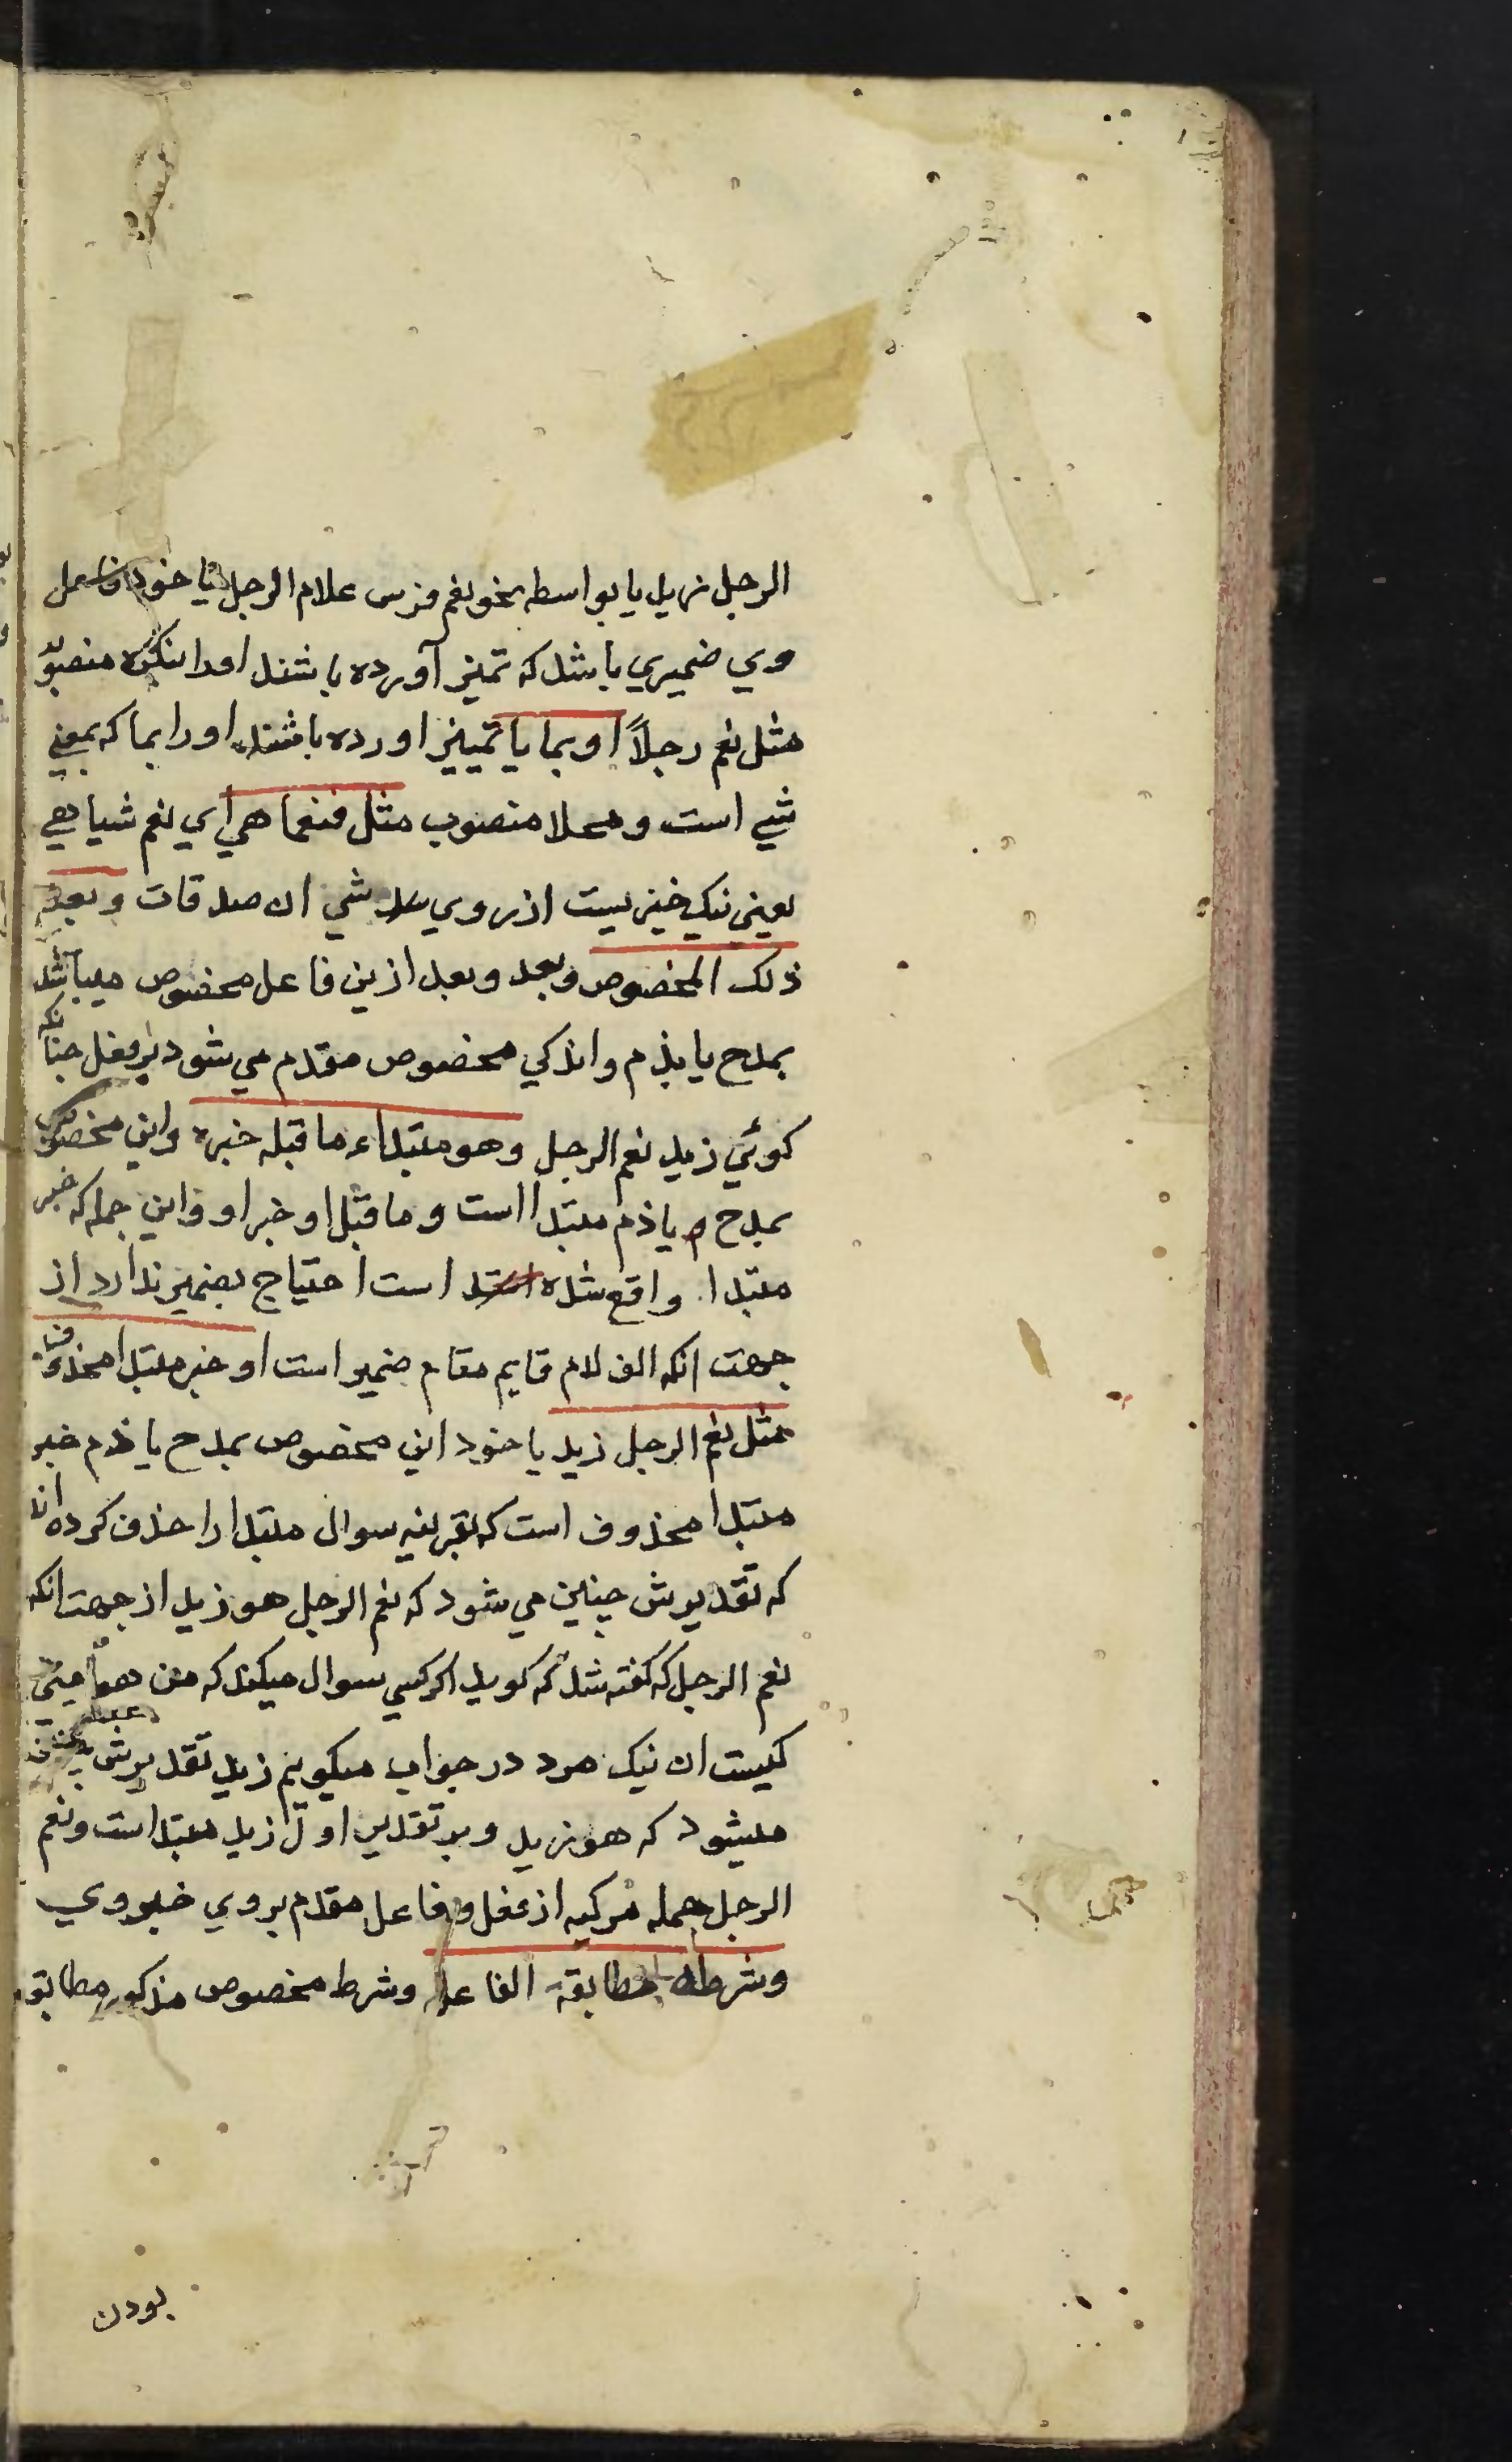 الرجل زيد يا بواسطه نحو نعم فرس غلام الرجل يا خود فاعل
وي ضميري باشد كه تميز آورده باشند اورا بنكره منصوبه
مثل نعم رجلاً او بما يا تمييز اورده باشند اورا بما كه بمعني
شي است و محلا منصوب مثل فنعما هي اي نعم شيا هي
يعني نيك خيزيست از روي شي ان صدقات و بعد
ذلك المخصوص وبعد وبعد ازين فاعل مخصوص ميباشد
بمدح يا بذم واندكي مخصوص مقدم مي شود بر فعل چنانكه
كوئي زيد نعم الرجل وهو مبتداء ما قبله خبره واين مخصوص
بمدح و يا ذم مبتدا است و ما قبل او خبر او واين جمله كه خبر
مبتدا واقع شده است احتياج بضمير ندارد از
جهت انكه الف لام قايم مقام ضمير است او خبر مبتدا محذوف
مثل نعم الرجل زيد يا خود اين مخصوص بمدح يا ذم خبر
مبتدا محذوف است كه بقرينه سوال مبتدا را حذف كرده اند
كه تقديرش چنين مي شود كه نعم الرجل هو زيد از جهت انكه
نعم الرجل كه كفته شد كه كويد اكر كسي سوال ميكند كه من هو يعني
كيست ان نيك مرد در جواب ميكويم زيد تقديرش چنين
ميشود كه هو زيد و بر تقدير اول زيد مبتدا است و نعم
الرجل جمله مركبه از فعل و فاعل مقدم بر وي خبر وي
وشرطه مطابقة الفاعل وشرط مخصوص مذكور مطابق
بودن